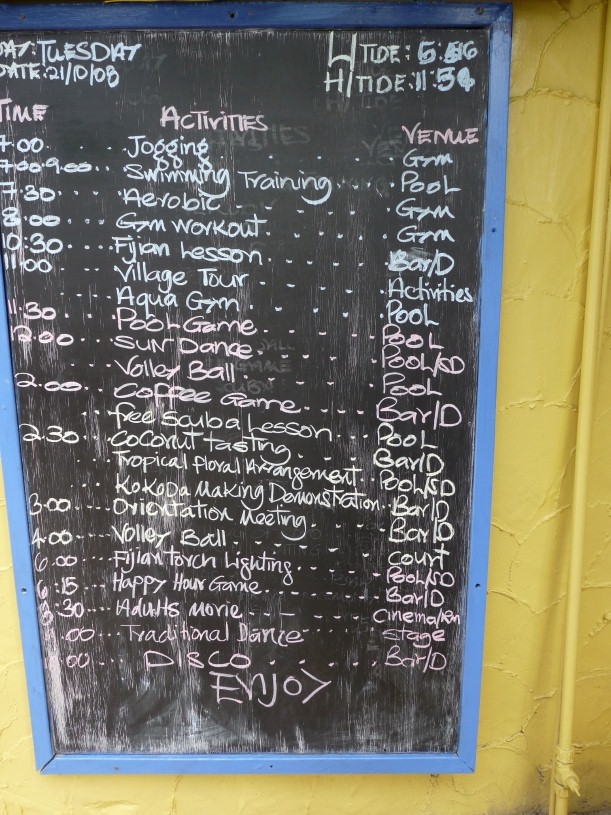 DAY: TUESDAY
DATE: 21/10/08
L/TIDE: 5:56
H/TIDE: 11:54
TIME ACTIVITIES VENUE
7.00 Jogging Gym
7.00-9.00 Swimming Training Pool
7.30 Aerobic Gym
8.00 Gym workout Gym
10:30 Fijian Lesson Bar/D
11.00 Village Tour Activities
Aqua Gym Pool
11.30 Pool Game Pool
12.00 Sun Dance Pool/SD
Volley Ball Pool
2.00 Coffee Game Bar/D
free Scuba Lesson Pool
2.30 Coconut tasting Bar/D
Tropical floral Arrangement Pool/SD
Kokoda Making Demonstration Bar/D
3.00 Orientation Meeting Bar/D
4.00 Volley Ball court
6.00 Fijian Torch Lighting Pool/SD
6:15 Happy Hour Game Bar/D
:30 Adults Movie cinema/Rm
00 Traditional Dance stage
00 DISCO Bar/D
ENJOY